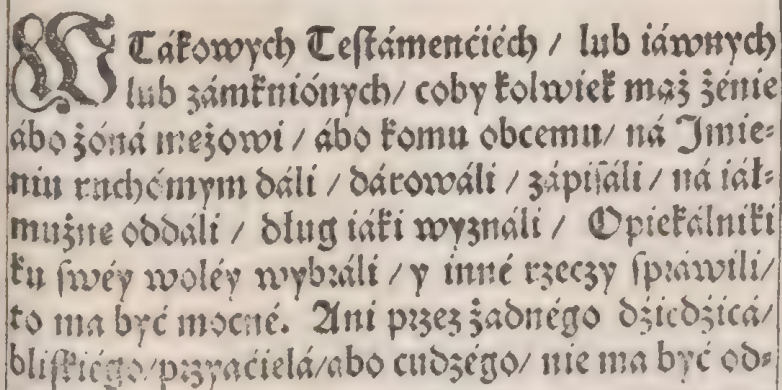 W Tákowych Teſtámenćiéch / lub iáwnych
lub zámkniónych / coby kolwiek mąż żénie
ábo żóná mężowi / ábo komu obcemu / ná Jmie⸗
niu ruchómym dáli / dárowáli / zápiſáli / ná iáł⸗
mużne oddáli / dług iáki wyználi / Opiekálniki
ku ſwéy woléy wybráli / y inné rzeczy ſpráwili /
to ma być mocné. Ani przez żadnégo dźiedźicá /
bliſkiégo / przyaćielá / abo cudzégo / nie ma być od⸗